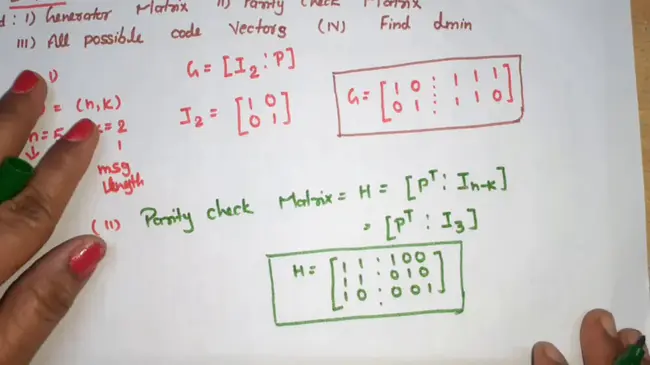 d: i) Generator Matrix ii) Parity check Matrix
III) All possible code Vectors (IV) Find dmin
i)
= (n,k)
n=5 k=2
msg length
G = [I₂ : P]
I₂ = [1 0
0 1]
G = [1 0 : 1 1 1
0 1 : 1 1 0]
(II) Parity check Matrix = H = [Pᵀ : Iₙ₋ₖ]
= [Pᵀ : I₃]
H = [1 1 : 1 0 0
1 1 : 0 1 0
1 0 : 0 0 1]